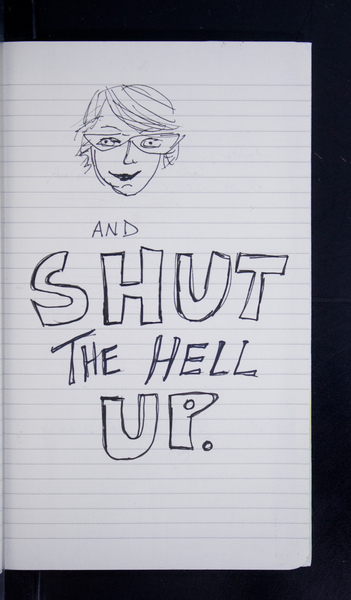 AND
SHUT
THE HELL
UP.